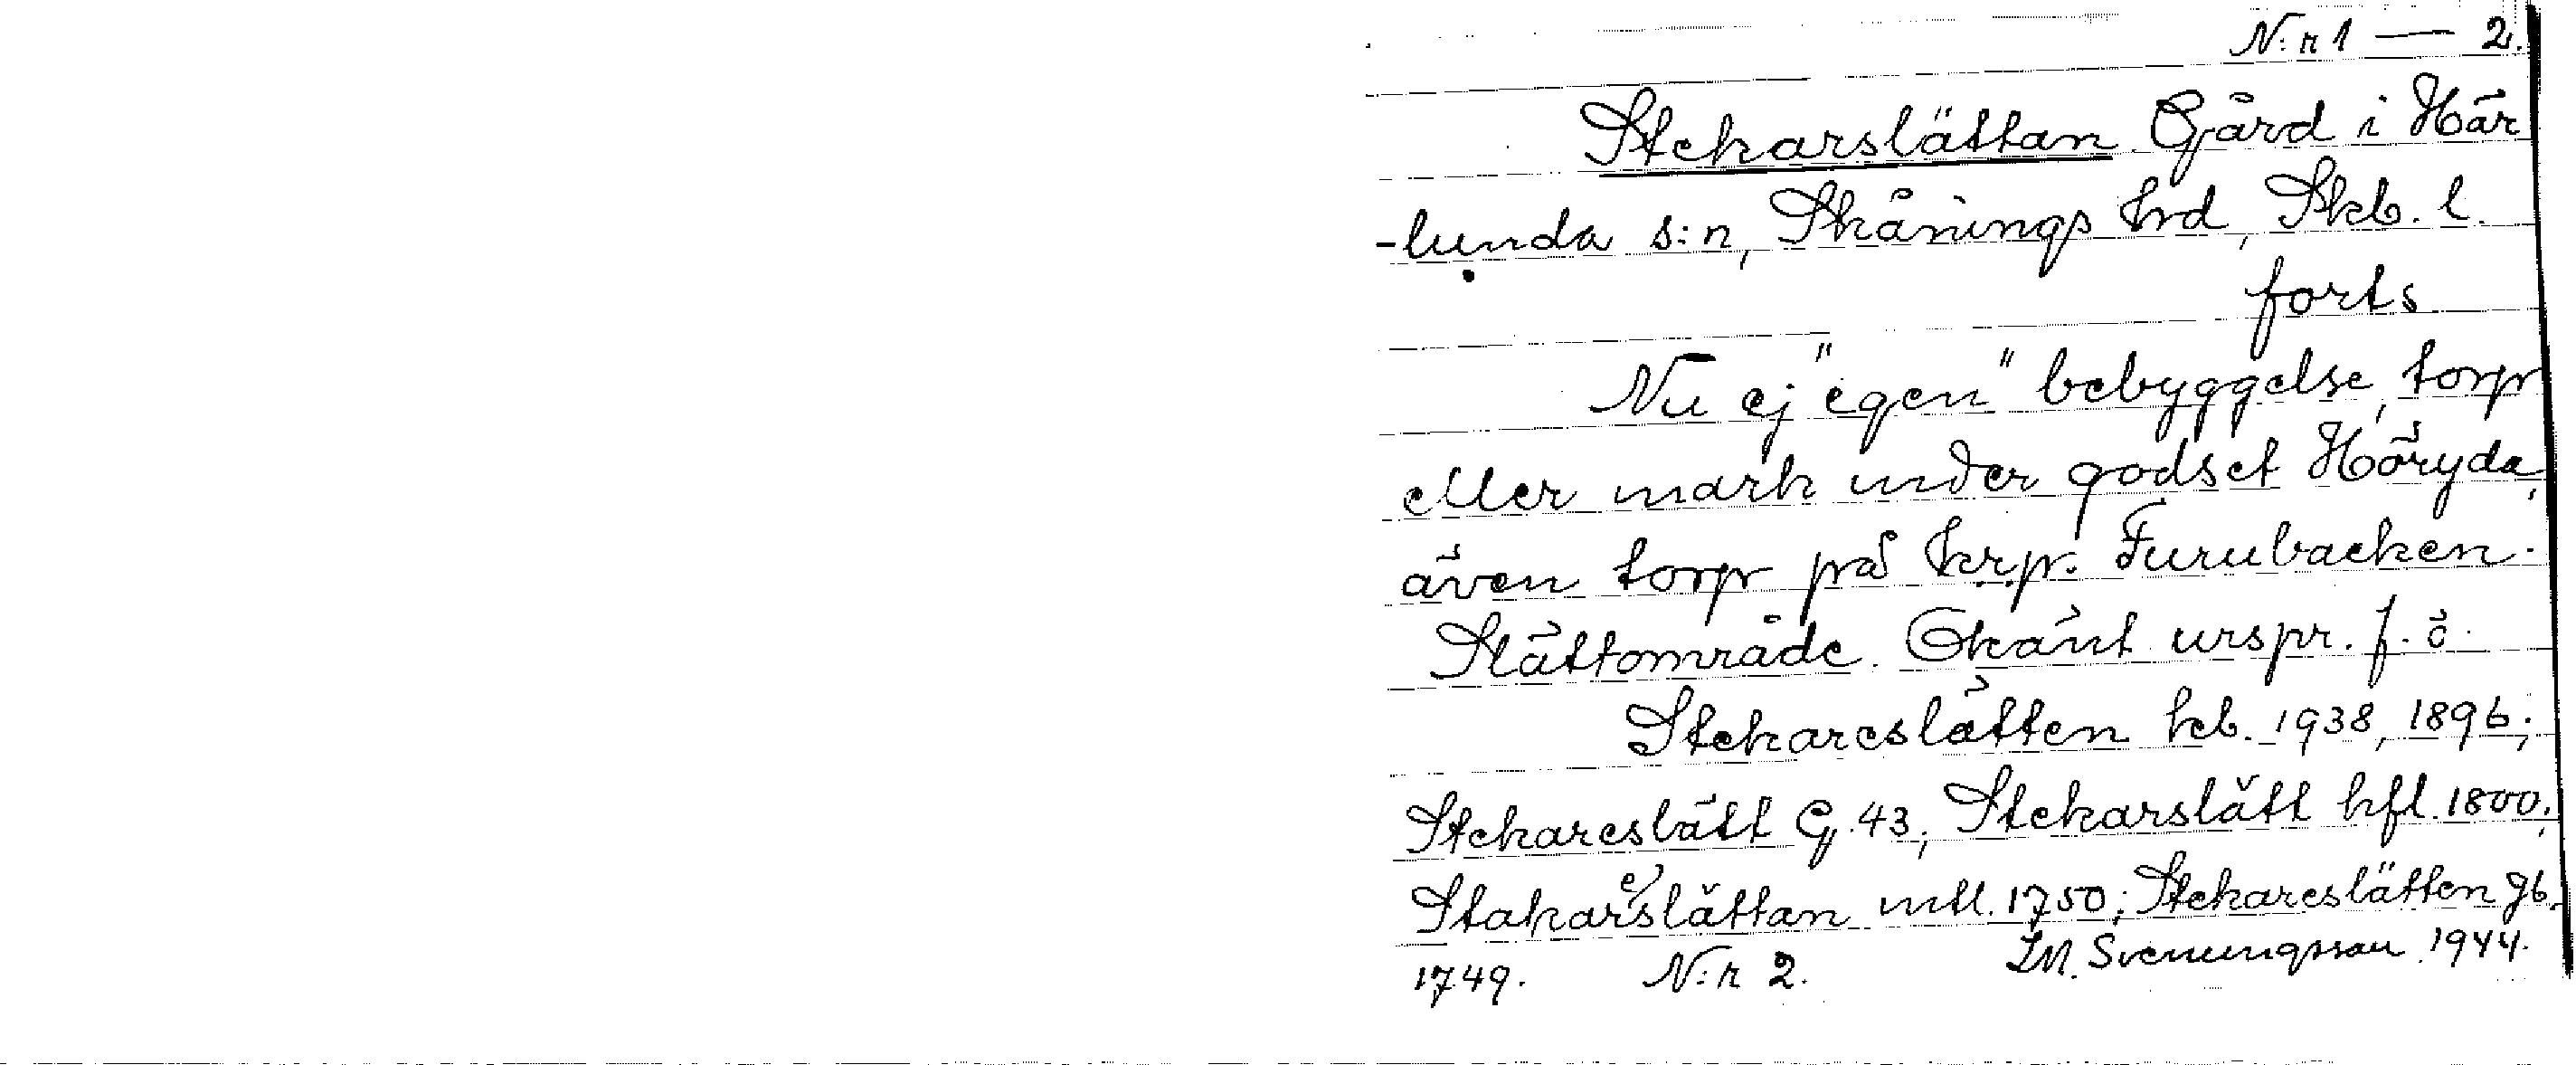 N:r 1 — 2.
Stekarslättan Gård i Här
-lunda s:n, Skånings hrd, Skb. l.
forts
Nu ej "egen" bebyggelse, torp
eller mark under godset Höryda,
även torp på krp. Furubacken.
Slättområde. Okänt urspr. f. ö.
Stekareslätten kb. 1938, 1896;
Stekareslätt G. 43; Stekarslätt hfl. 1800;
Stakareslättan mtl. 1750; Stekareslätten jb.
1749. N:r 2. I.M. Svenungsson 1944.